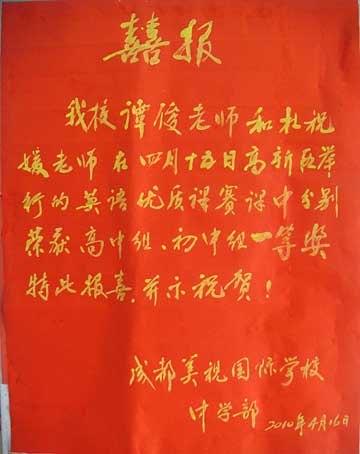 囍报
我校谭俊老师和杜祝
媛老师在四月十五日高新区举
行的英语优质课赛课中分别
荣获高中组、初中组一等奖
特此报喜，并示祝贺！
成都美视国际学校
中学部 2010年4月16日